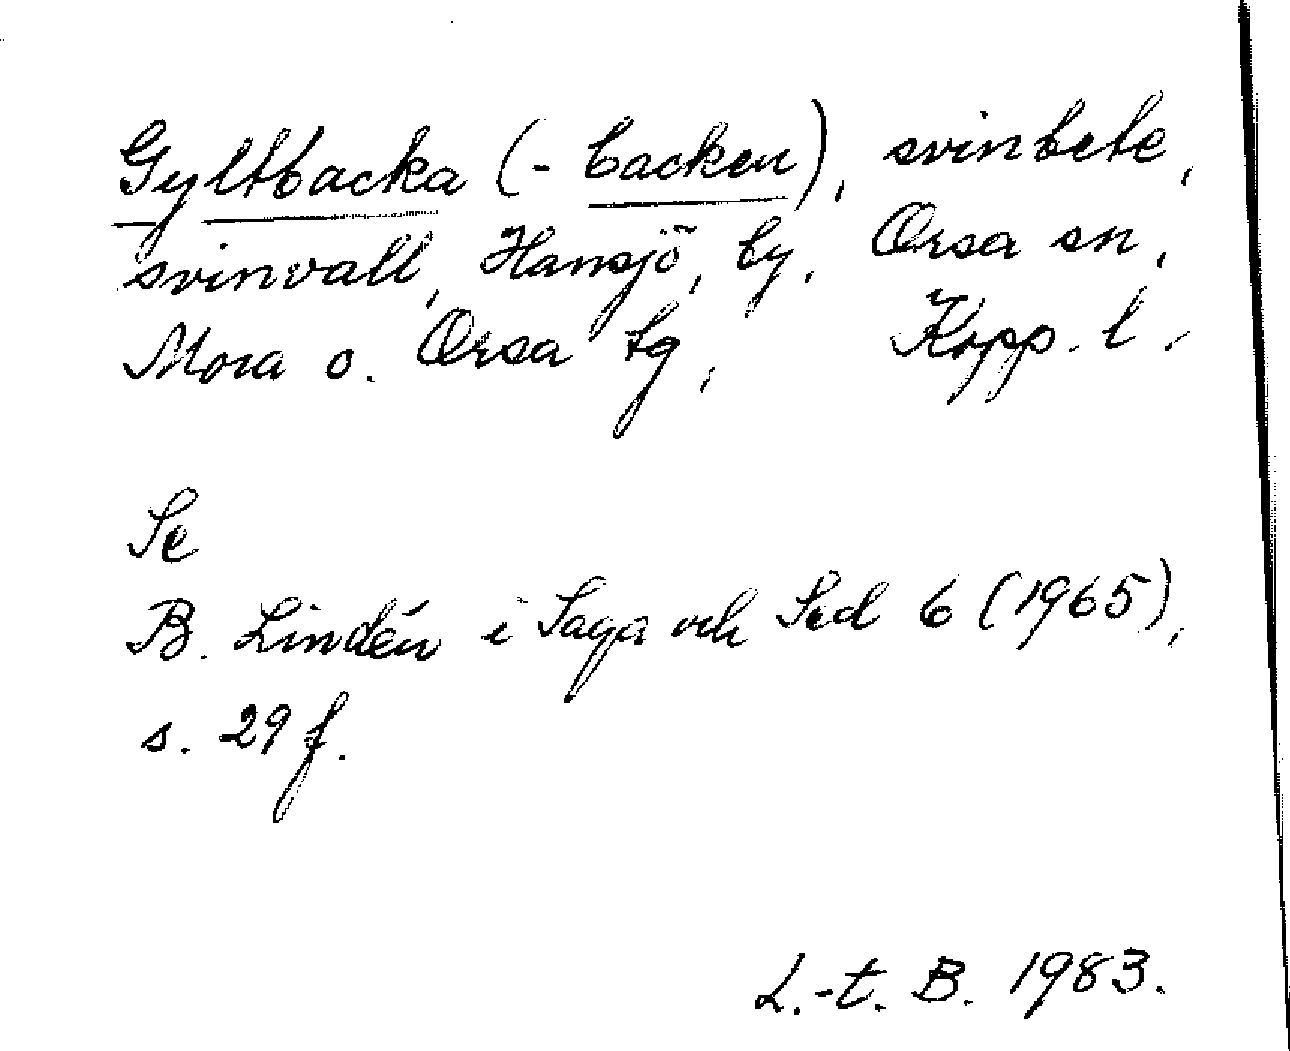 Gyltbacka (-backen), svinbete,
svinvall, Hansjö, by, Orsa sn,
Mora o. Orsa tg, Kopp. l.
Se
B. Lindén i Saga och Sed 6 (1965),
s. 29 f.
L.-t. B. 1983.